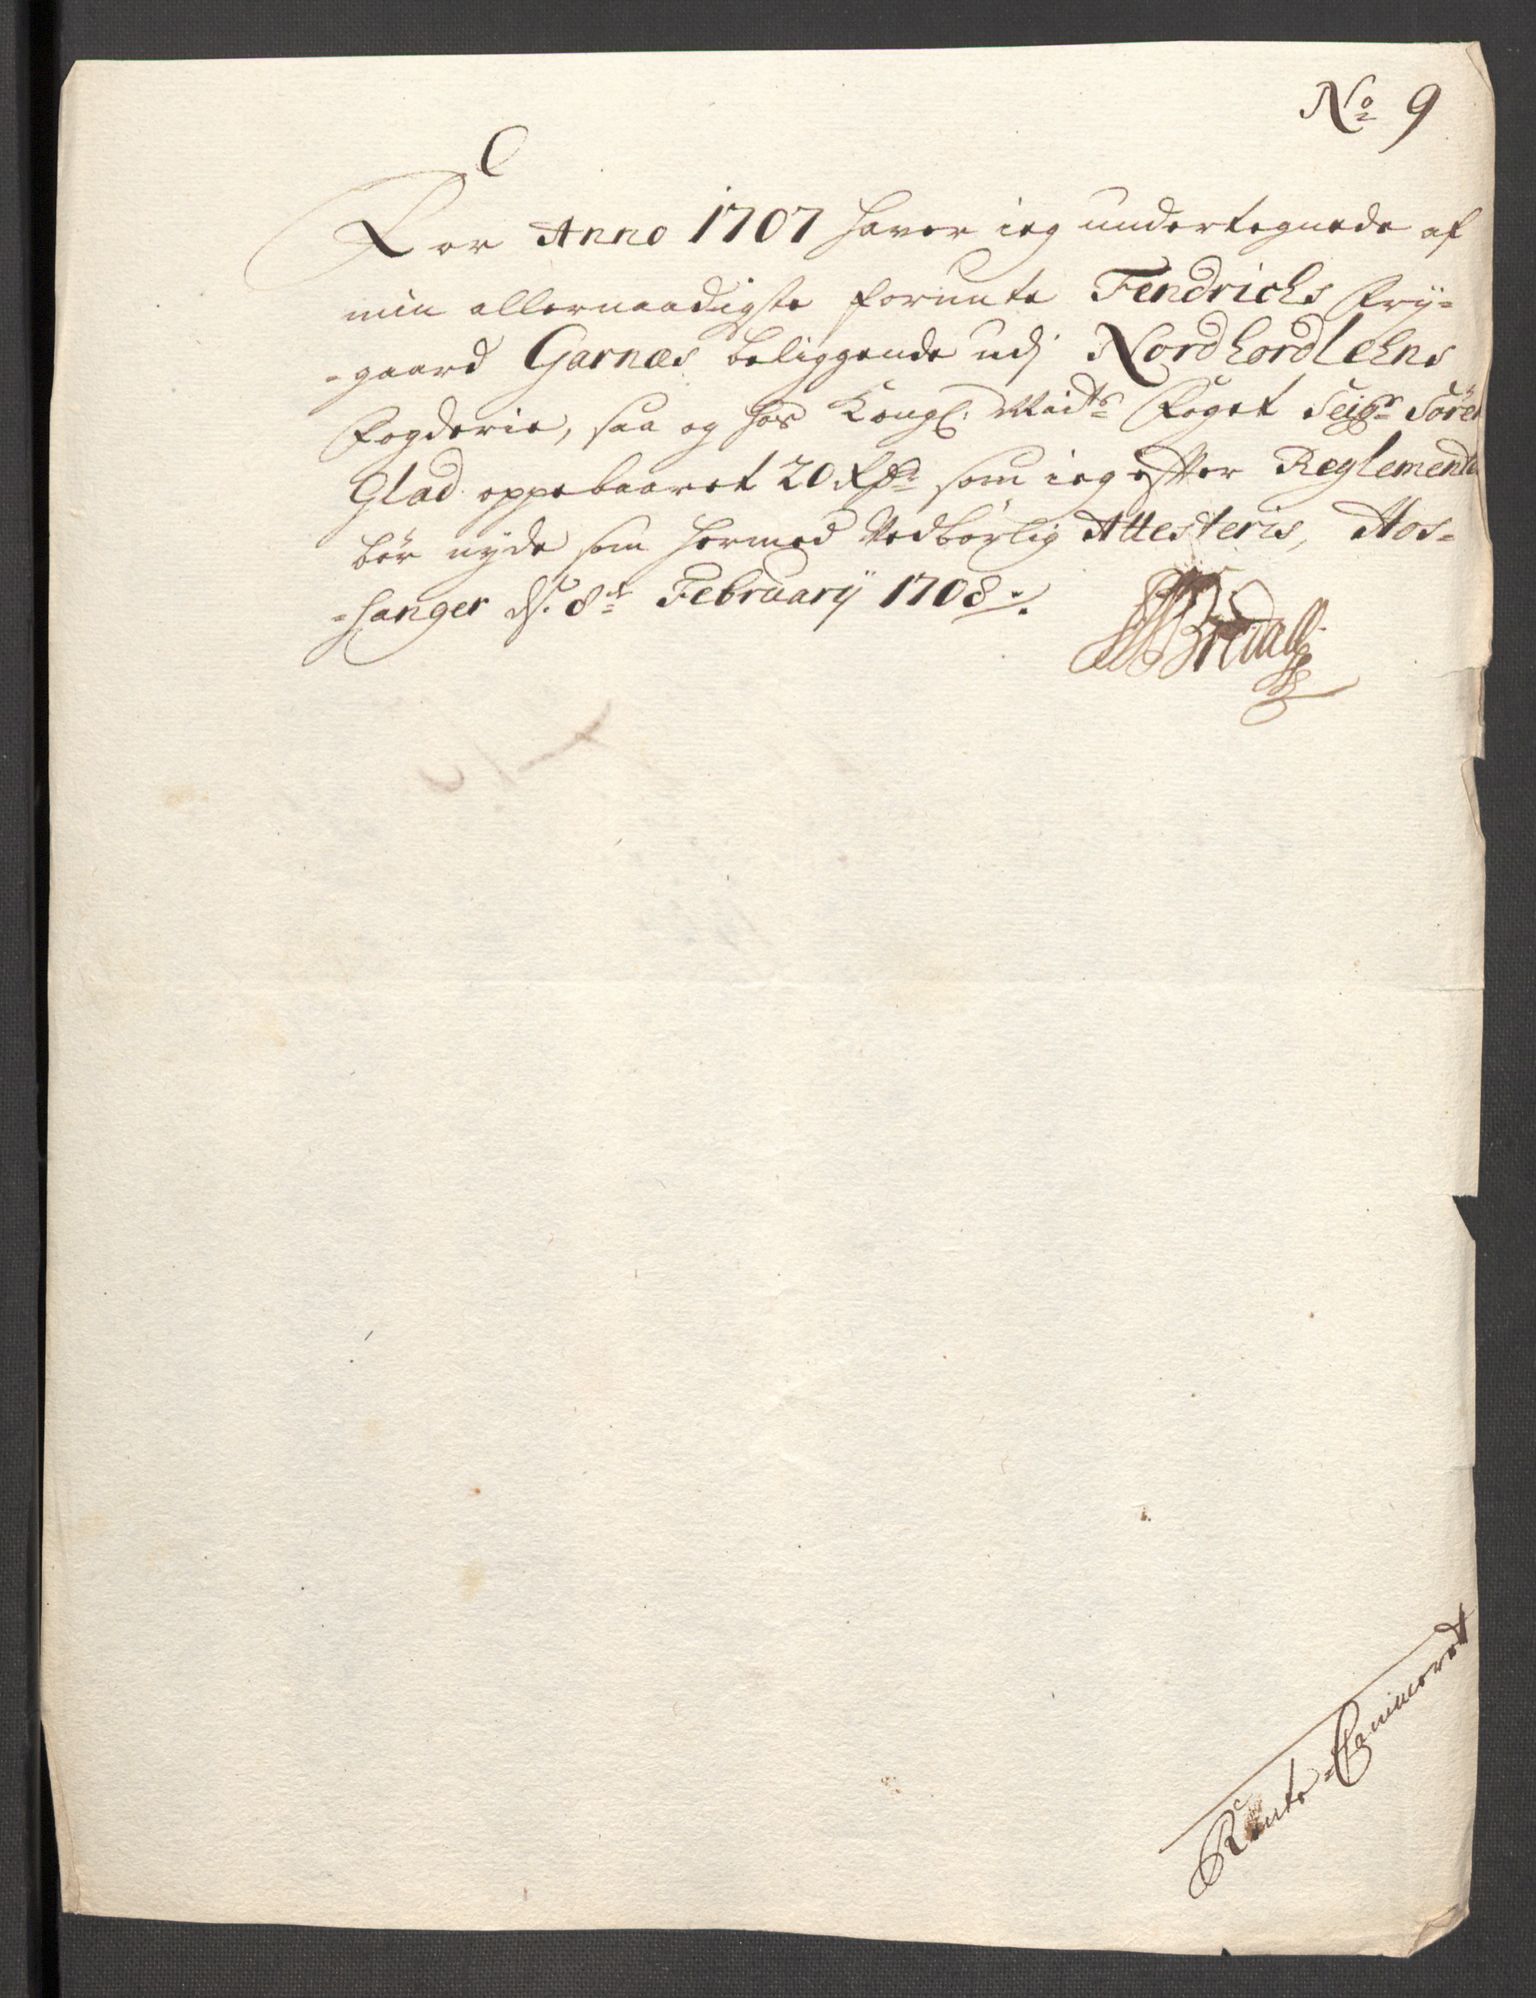 No 9
For Anno 1707 haver ieg undertegnede af
min allernaadigste forunte Fendrichs Frÿ=
=gaard Garnæs beliggende udj Nordhordlehns
Fogderie, saa og hos Kongl: Maits Foget Seigr Sören
Glad oppebaaret 20 Rdr som ieg efter Reglemente
bör nyde som hermed Vedbörlig Attesteris, Hos=
=hanger ds. 8t Februarÿ 1708 ./.
Bredall
Rente-Cammeret